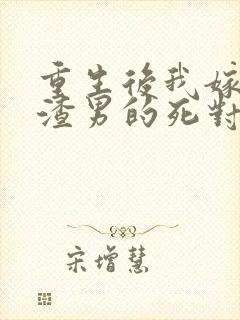 重生後我嫁
渣男的死對
宋增慧